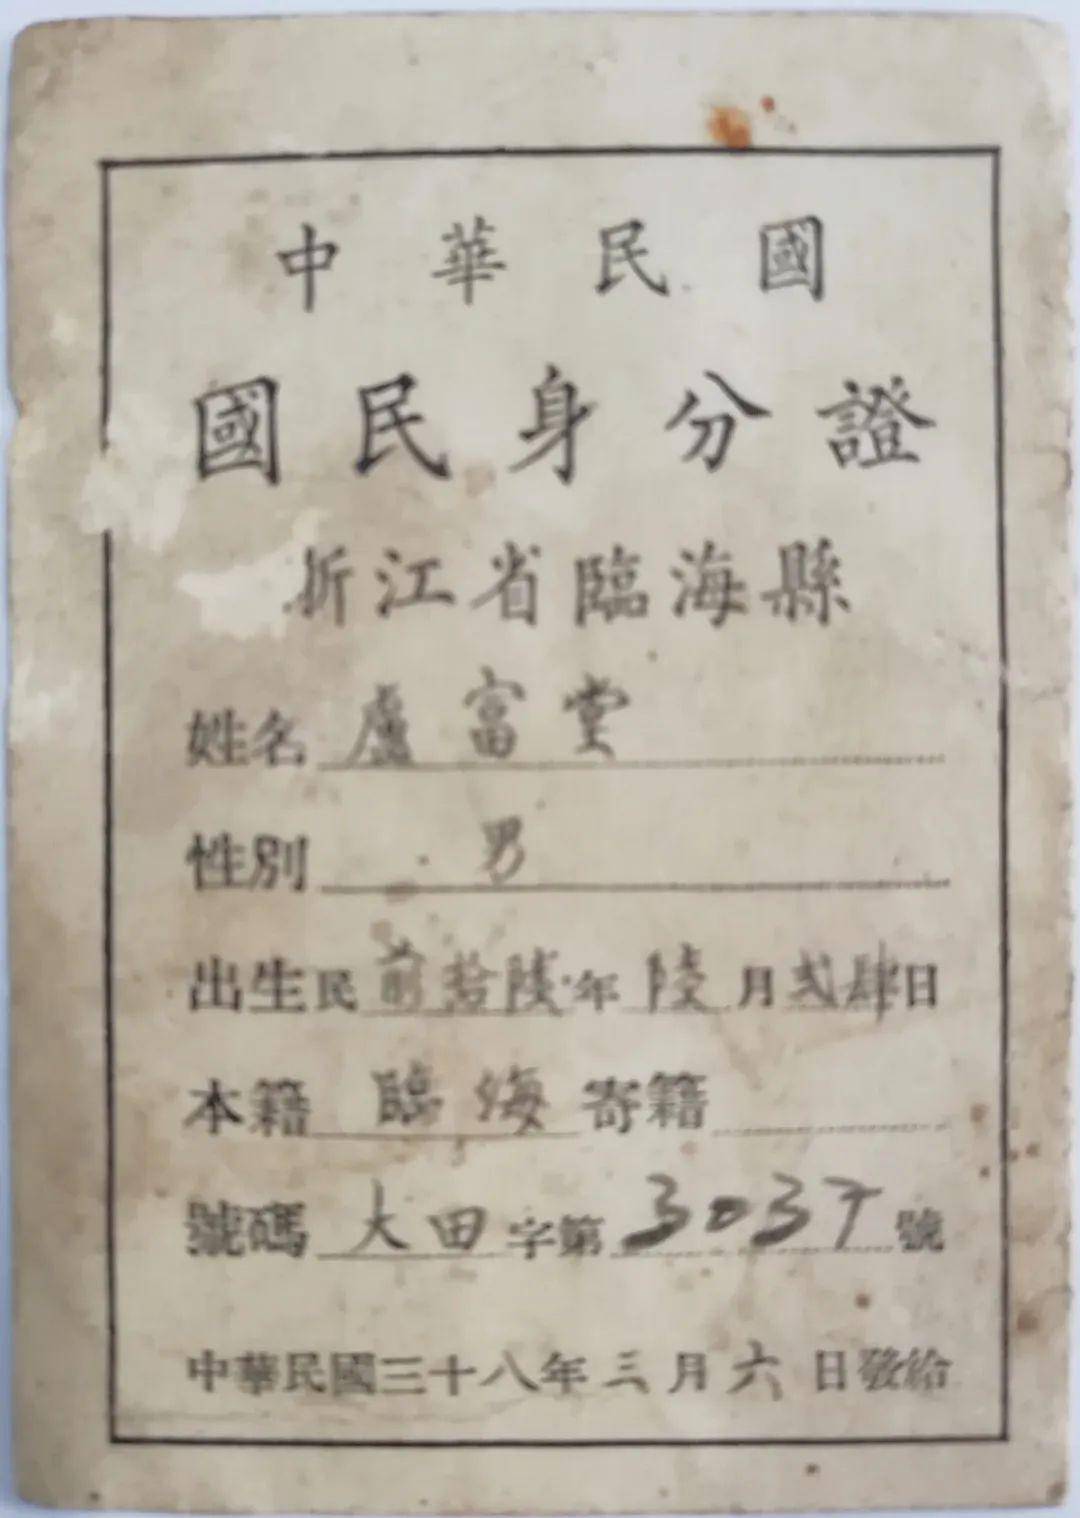 中華民國
國民身分證
浙江省臨海縣
姓名 盧富堂
性別 男
出生民前拾陸年陸月弍肆日
本籍 臨海 寄籍
號碼 大田字第3037號
中華民國三十八年三月六日發給